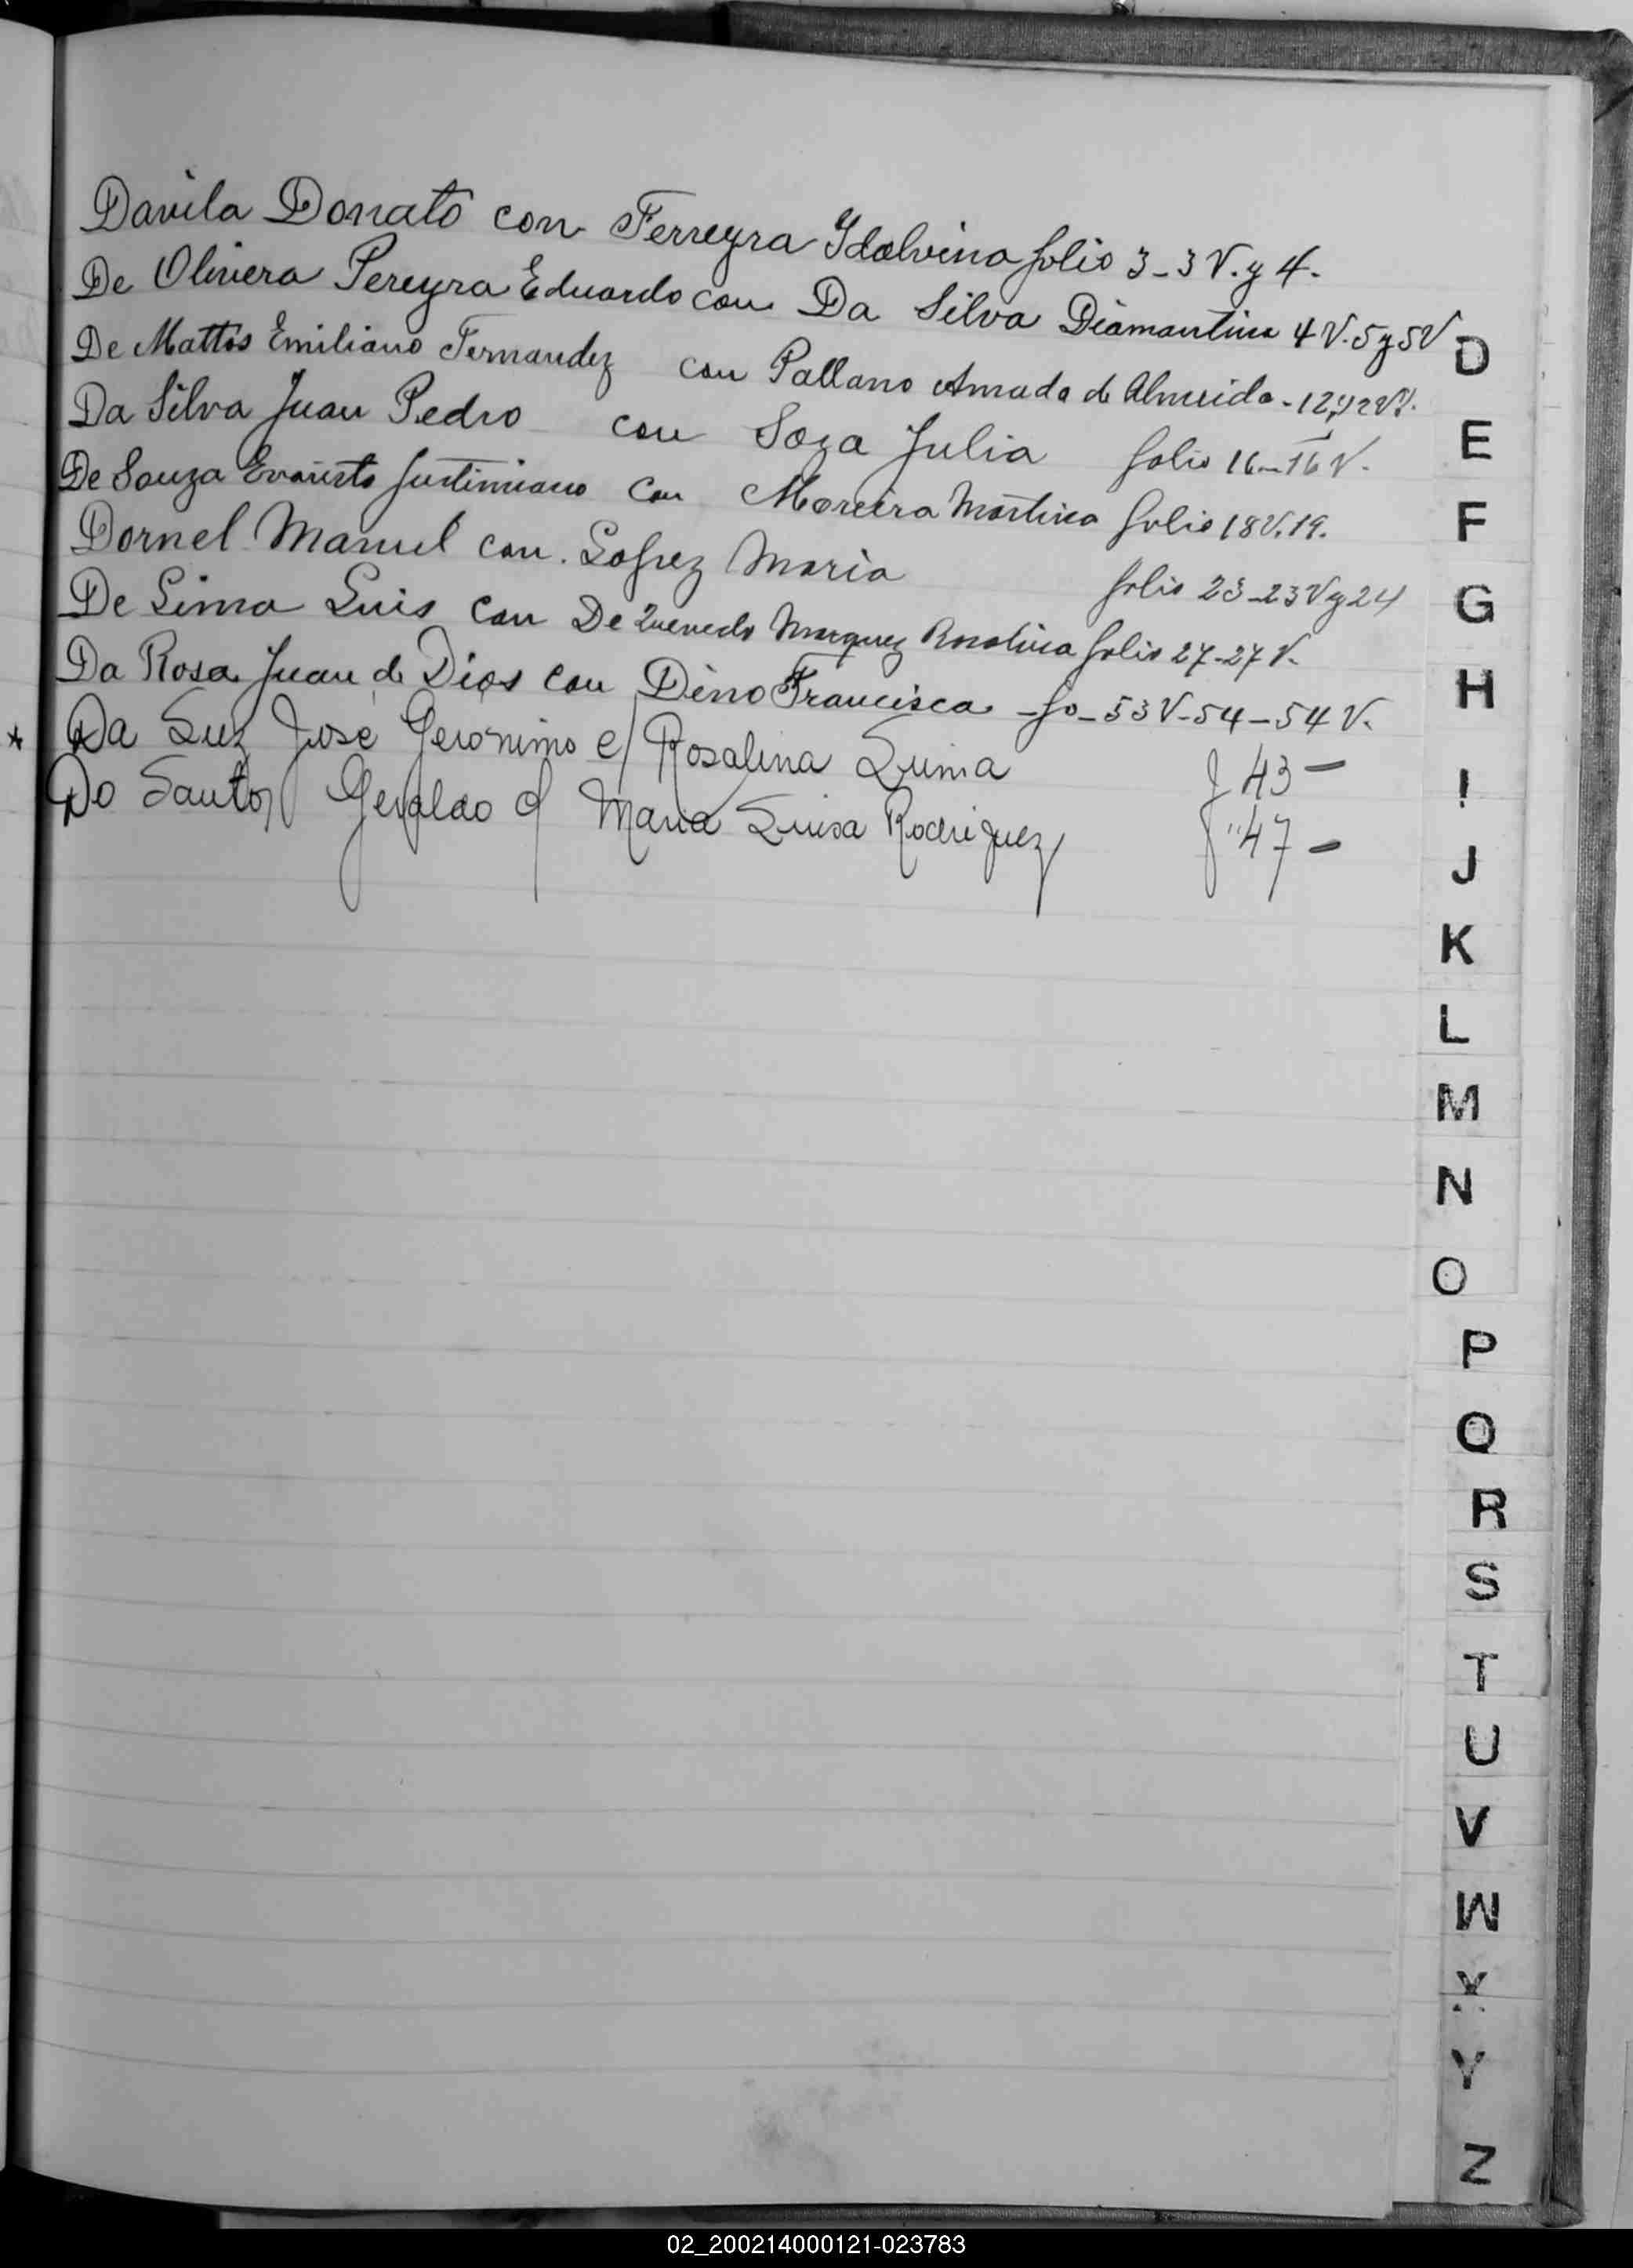 Davila Donato con Ferreyra Ydalvina folio 3-3 V. y 4.
De Olivera Pereyra Eduardo con Da Silva Diamantina 4 V. 5 y 5 V
De Mattos Emiliano Fernandez con Pallano Amada de Almeida - 12 y 12 V.
Da Silva Juan Pedro con Soza Julia folio 16-16 V.
De Souza Evaristo Justiniano con Moreira Martina folio 18 V. 19.
Dornel Manuel con Lopez Maria folio 23-23 V y 24
De Lima Luis con De Quevedo Marquez folio 27-27 V.
Da Rosa Juan de Dios con Dino Francisca - fo - 53 V - 54 - 54 V.
* Da Luz José Geronimo c/ Rosalina Luima f 43 -
Do Santos Geraldo c/ Maria Luisa Rodriguez f " 47 -
D
E
F
G
H
I
J
K
L
M
N
O
P
Q
R
S
T
U
V
W
X
Y
Z
02_200214000121-023783